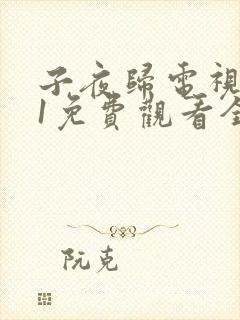 子夜歸電視
1免費觀看全
阮克